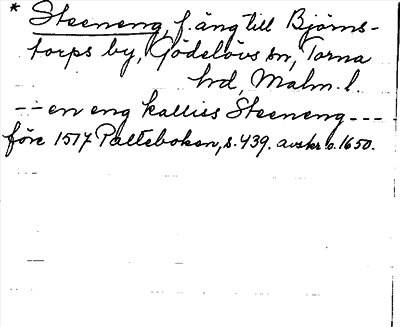 * Steeneng, f. äng till Björns-
torps by, Gödelövs sn, Torna
hd, Malm. l.
-- en eng kalliss Steeneng ---
före 1517 Palteboken, s. 439. avskr. o. 1650.